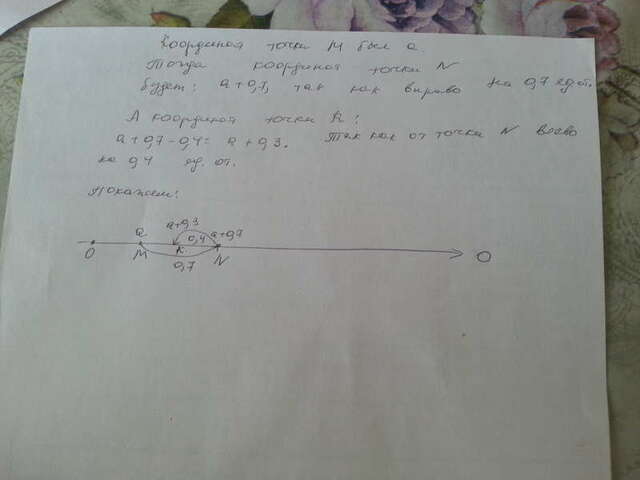 Координата точки M был a.
Тогда координат точки N
будет: a+0,7, так как вправо на 0,7 ед.от.
А координат точки K:
a+0,7-0,4= a+0,3. Так как от точки N влево
на 0,4 ед. от.
Покажем:
a+0,3
a 0,4 a+0,7
O M K N O
0,7